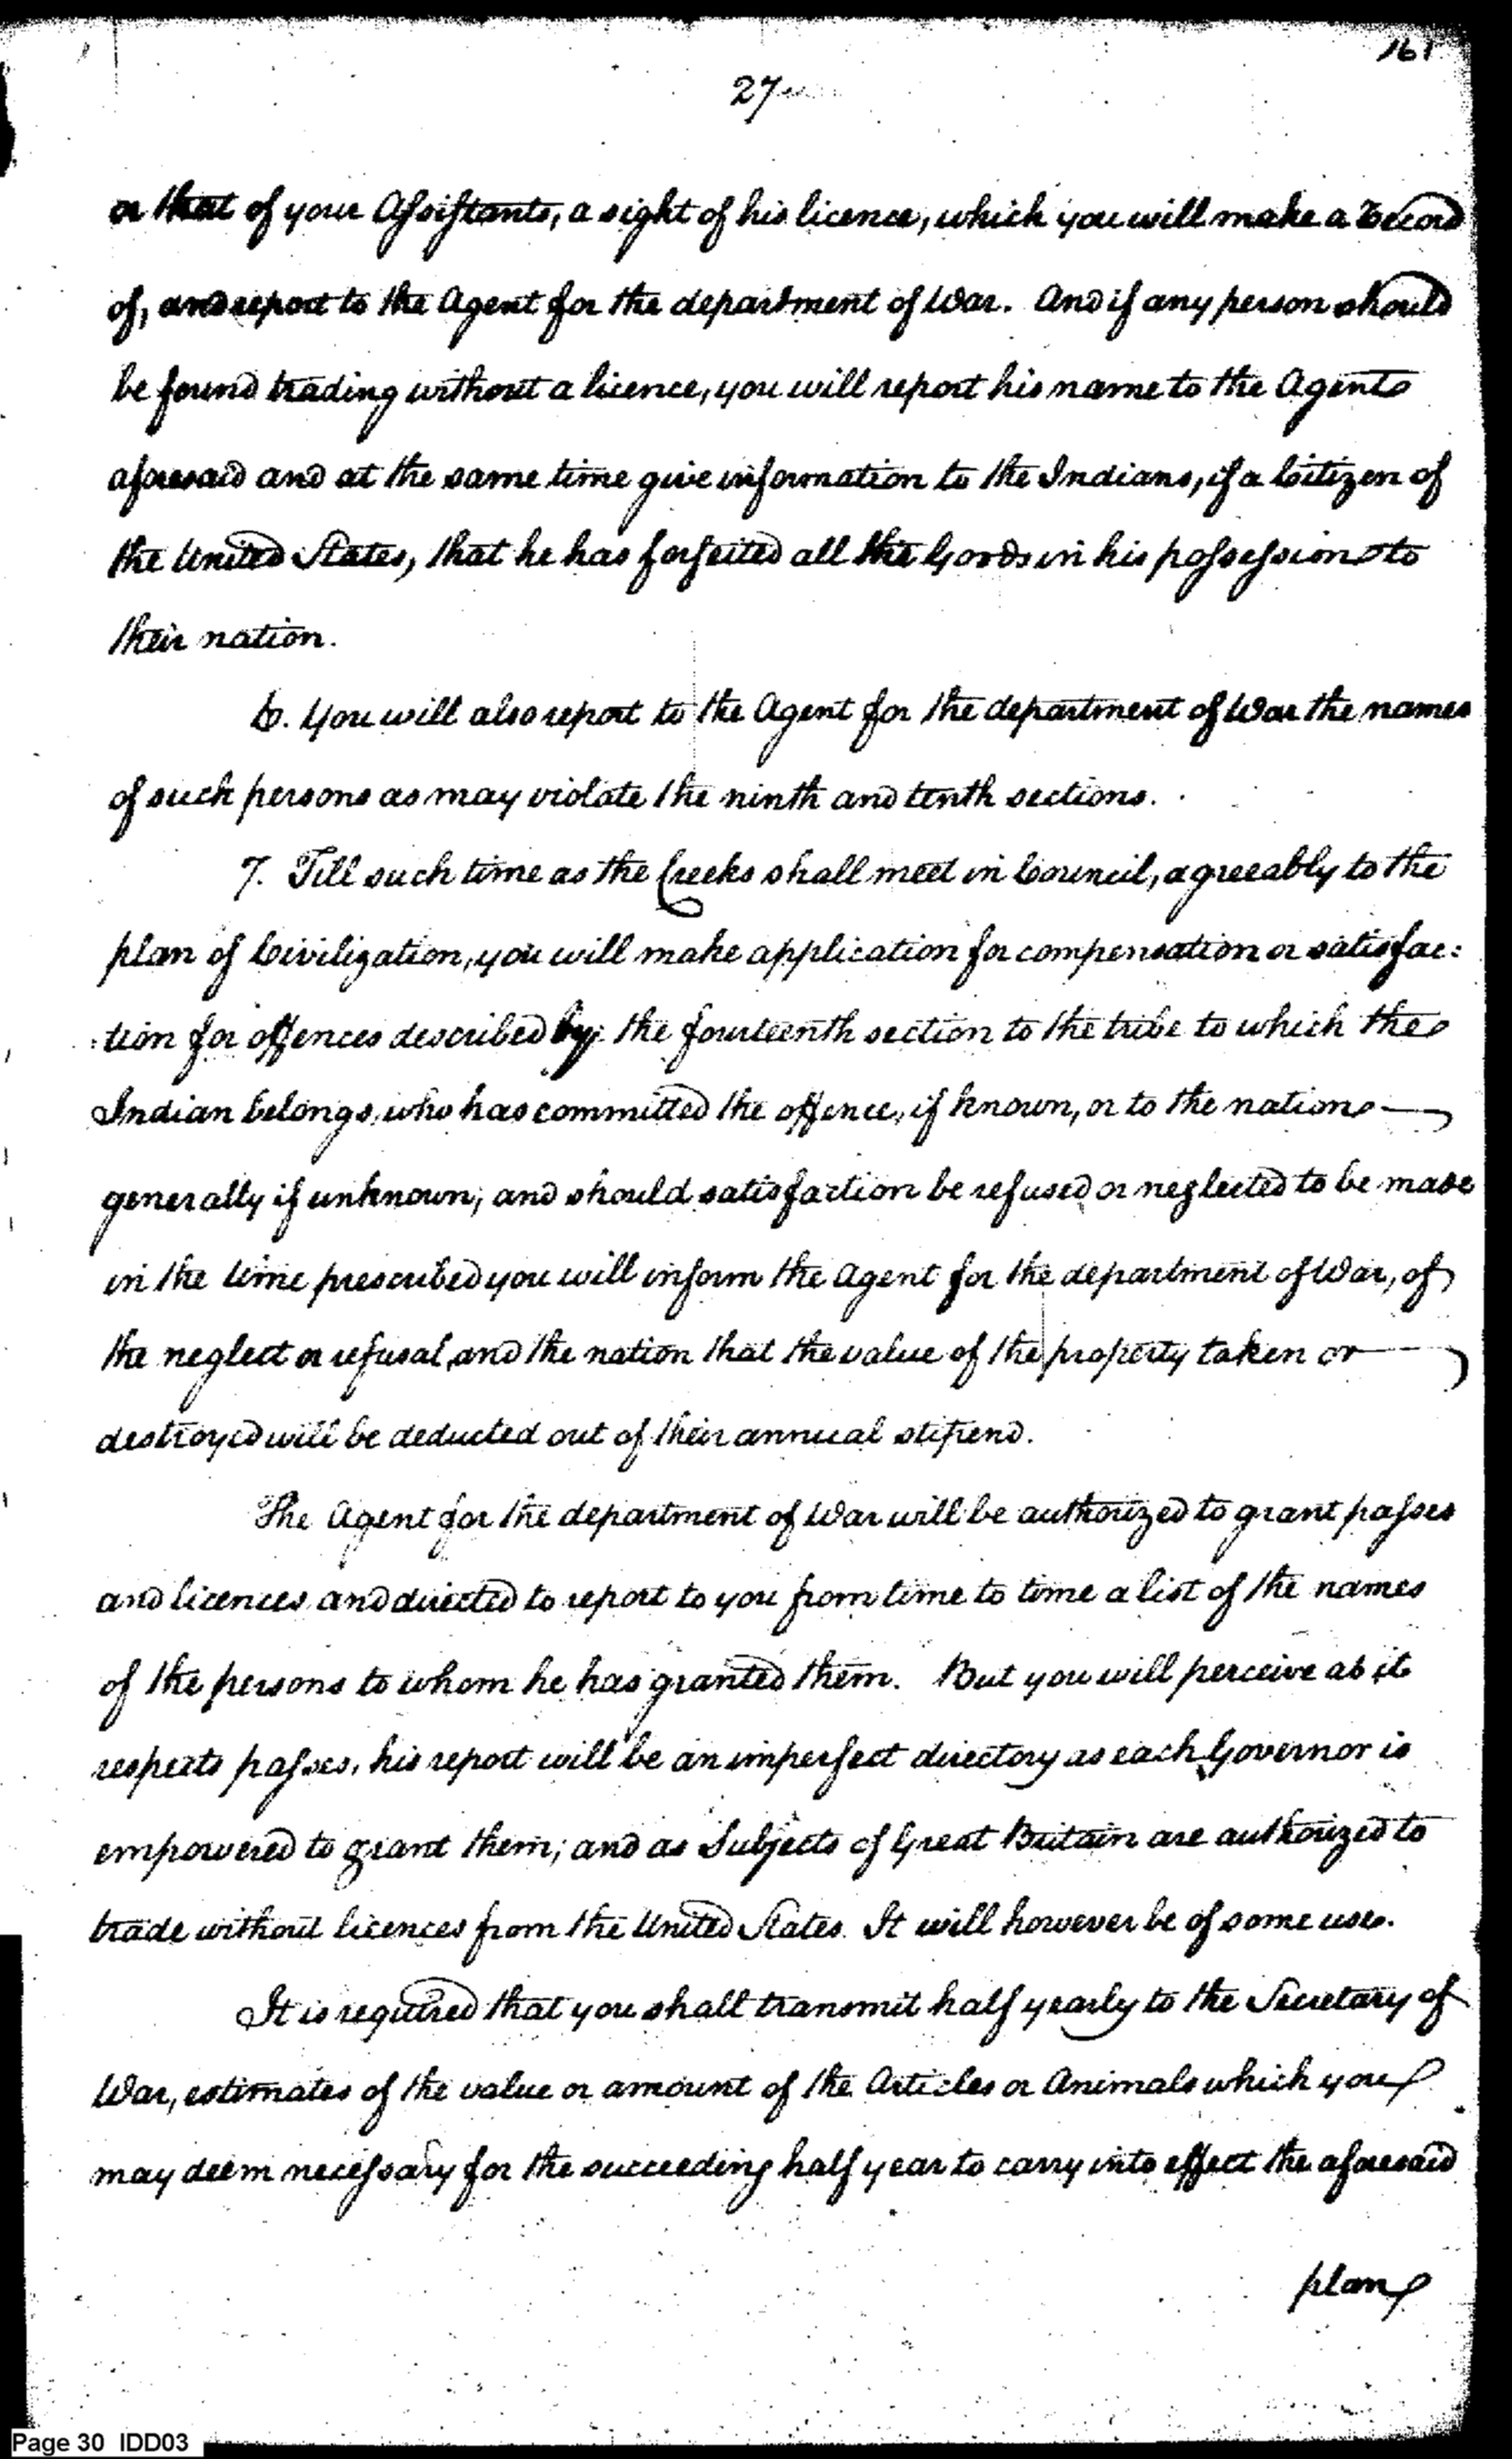 161
27
or that of your Assistants, a sight of his licence, which you will make a Record
of, and report to the Agent for the department of War. And if any person should
be found trading without a licence, you will report his name to the Agent
aforesaid and at the same time give information to the Indians, if a Citizen of
the United States, that he has forfeited all the Goods in his possession to
their nation.
6. You will also report to the Agent for the department of War the names
of such persons as may violate the ninth and tenth sections.
7. Till such time as the Creeks shall meet in Council, agreeably to the
plan of Civilization, you will make application for compensation or satisfac:
:tion for offences described by the fourteenth section to the tribe to which the
Indian belongs, who has committed the offence, if known, or to the nation
generally if unknown; and should satisfaction be refused or neglected to be made
in the time prescribed you will inform the Agent for the department of War, of
the neglect or refusal, and the nation that the value of the property taken or
destroyed will be deducted out of their annual stipend.
The Agent for the department of War will be authorized to grant passes
and licences and directed to report to you from time to time a list of the names
of the persons to whom he has granted them. But you will perceive as it
respects passes, his report will be an imperfect directory as each Governor is
empowered to grant them; and as Subjects of Great Britain are authorized to
trade without licences from the United States. It will however be of some use.
It is required that you shall transmit half yearly to the Secretary of
War, estimates of the value or amount of the Articles or Animals which you
may deem necessary for the succeeding half year to carry into effect the aforesaid
plan
Page 30 IDD03